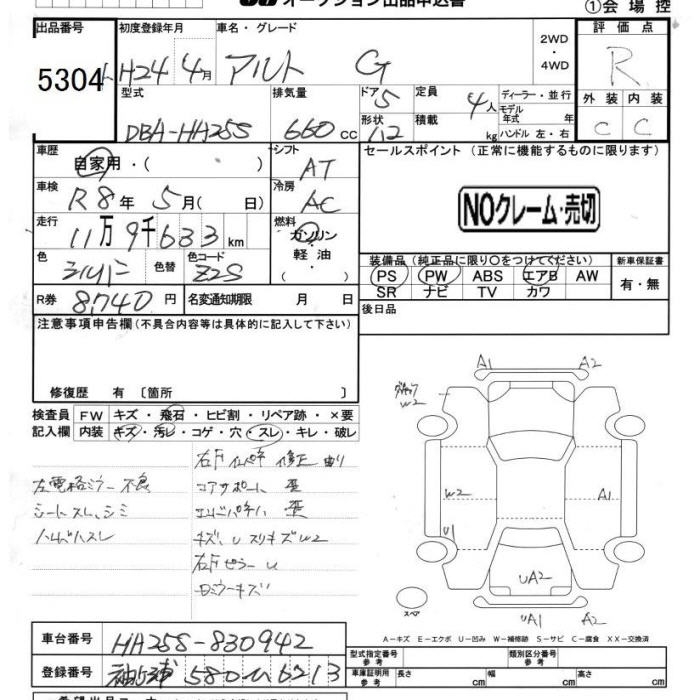 オークション出品申込書
①会場控
出品番号 初度登録年月 車名・グレード 2WD・4WD 評価点
5304 H24 4月 アルト G R
型式 排気量 ドア 5 定員 4人 ディーラー・並行 外装 内装
DBA-HA25S 660cc 形状 積載 kg モデル年式 年 ハンドル 左・右 C C
車歴 自家用・( ) シフト AT セールスポイント (正常に機能するものに限ります)
車検 R8年 5月( 日) 冷房 AC
NOクレーム・売切
走行 11万9千633km 燃料 ガソリン・軽油・
色 シルバー 色替 色コード Z2S
装備品 (純正品に限り〇をつけてください) 新車保証書
PS PW ABS エアB AW 有・無
SR ナビ TV カワ
R券 8,740円 名変通知期限 月 日 後日品
注意事項申告欄(不具合内容等は具体的に記入して下さい)
修復歴 有 〔箇所 〕
検査員 FW キズ・飛石・ヒビ割・リペア跡・×要
記入欄 内装 キズ・汚レ・コゲ・穴・スレ・キレ・破レ
修正 有り
左電格ミラー不良 コアサポート 歪
シートスレ、シミ 歪
キズ、U スリキズW2
右Fピラー U
A1 A2
W2
W2 A1
U1
UA2
スペア
UA1 A2
A-キズ E-エクボ U-凹み W-補修跡 S-サビ C-腐食 XX-交換済
車台番号 HA25S-830942
登録番号 袖ヶ浦 580 い 6213
型式指定番号 参考 類別区分番号 参考
車庫証明用 参考 長さ cm 幅 cm 高さ cm